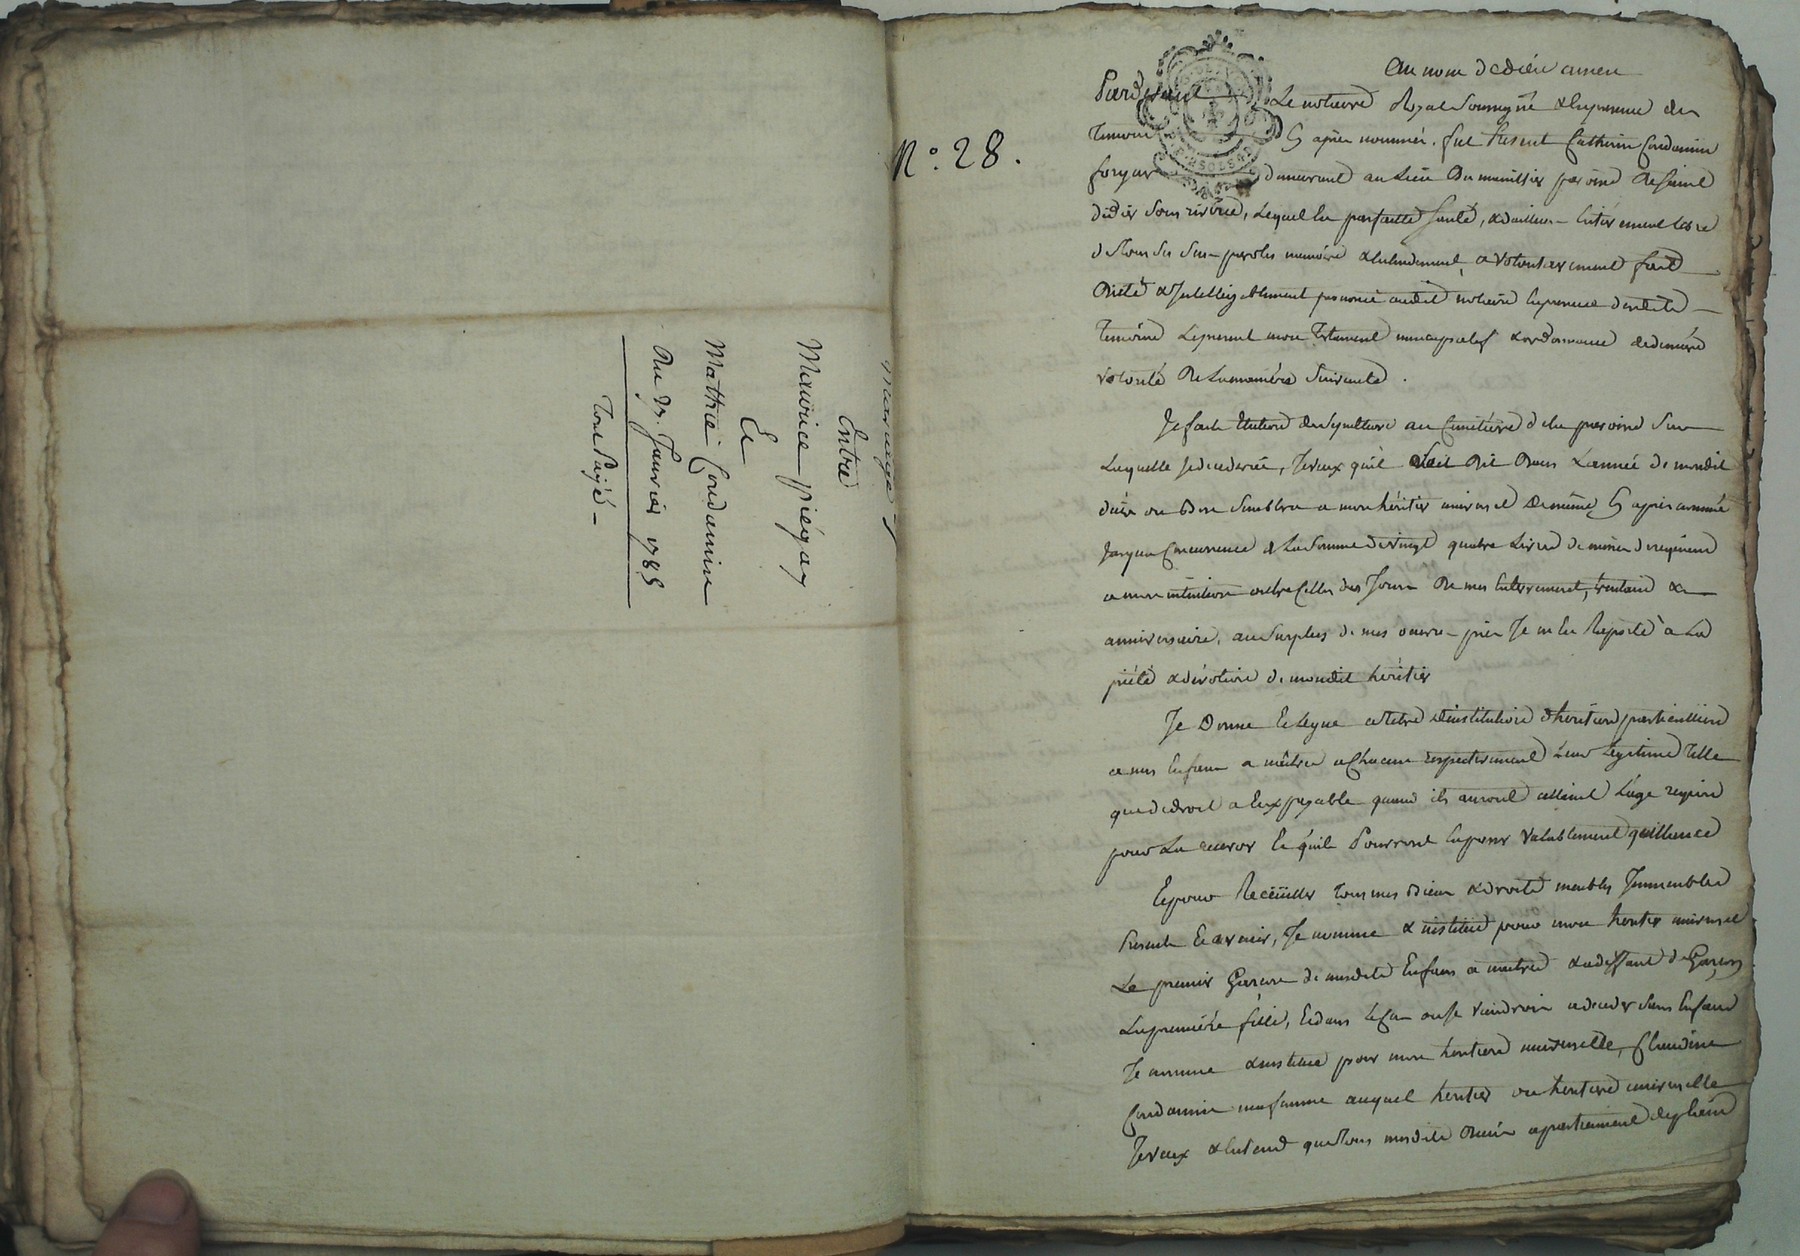 Mariage
Entre
Maurice piégay
Et
Mathie Condamine
Du Janvier 1785
Tout Payé
N.° 28.
au nom de dieu amen
Pardevant Le notaire Royal Soussigné & en presence des
Temoins Cy après nommés. fut Present Condamin
demeurant au Lieu Du paroisse De Saint
didier Sous riverie, Lequel En parfaitte Santé, & d'ailleurs Entierement
de Tous Ses Sens parolles memoire & Entendement, a volontairement fait
Dicté & Intelligiblement prononcé audit notaire En presence desdits
Temoins Le present mon Testament nuncupatif & ordonnance de derniere
volonté De La maniére Suivante.
Je fais Election de Sepulture au Cimetiére de la paroisse Sur
Laquelle Je decederai, Je veux qu'il Soit Dit Dans L'année de mondit
décès ou Bon Semblera a mon héritier universel Cy après nommé
Jusqu'a Concurrence de La Somme de vingt quatre Livres de messes de requiem
a mon intention outre Celles des Jours De mes Enterrement, trentaine &
anniversaire, au Surplus de mes œuvres pies Je m'En Raporte à La
piété & dévotion de mondit héritier
Je Donne Et legue a titre d'institution d'heritiere particuliere
a mes Enfans a naitre a Chacun respectivement Leur Legitime Telle
que de droit a Eux payable quand ils auront atteint L'age requis
pour La recevoir Et qu'ils Pourront En passer valablement quittance
Et pour Recüeillir Tous mes Biens & droits meubles Immeubles
Presents Et avenir, Je nomme & institue pour mon heritier universel
Le premier Garcon de mesdits Enfans a naitre & a deffaut de Garcons
La premiére fille, Et dans Le Cas ou Je viendrois a deceder Sans Enfans
Je nomme & institue pour mon heritiere universelle, Claudine
Condamin ma femme auquel heritier ou heritiere universelle
Je veux & Entend que Tous mesdits Biens apartiennent de plein